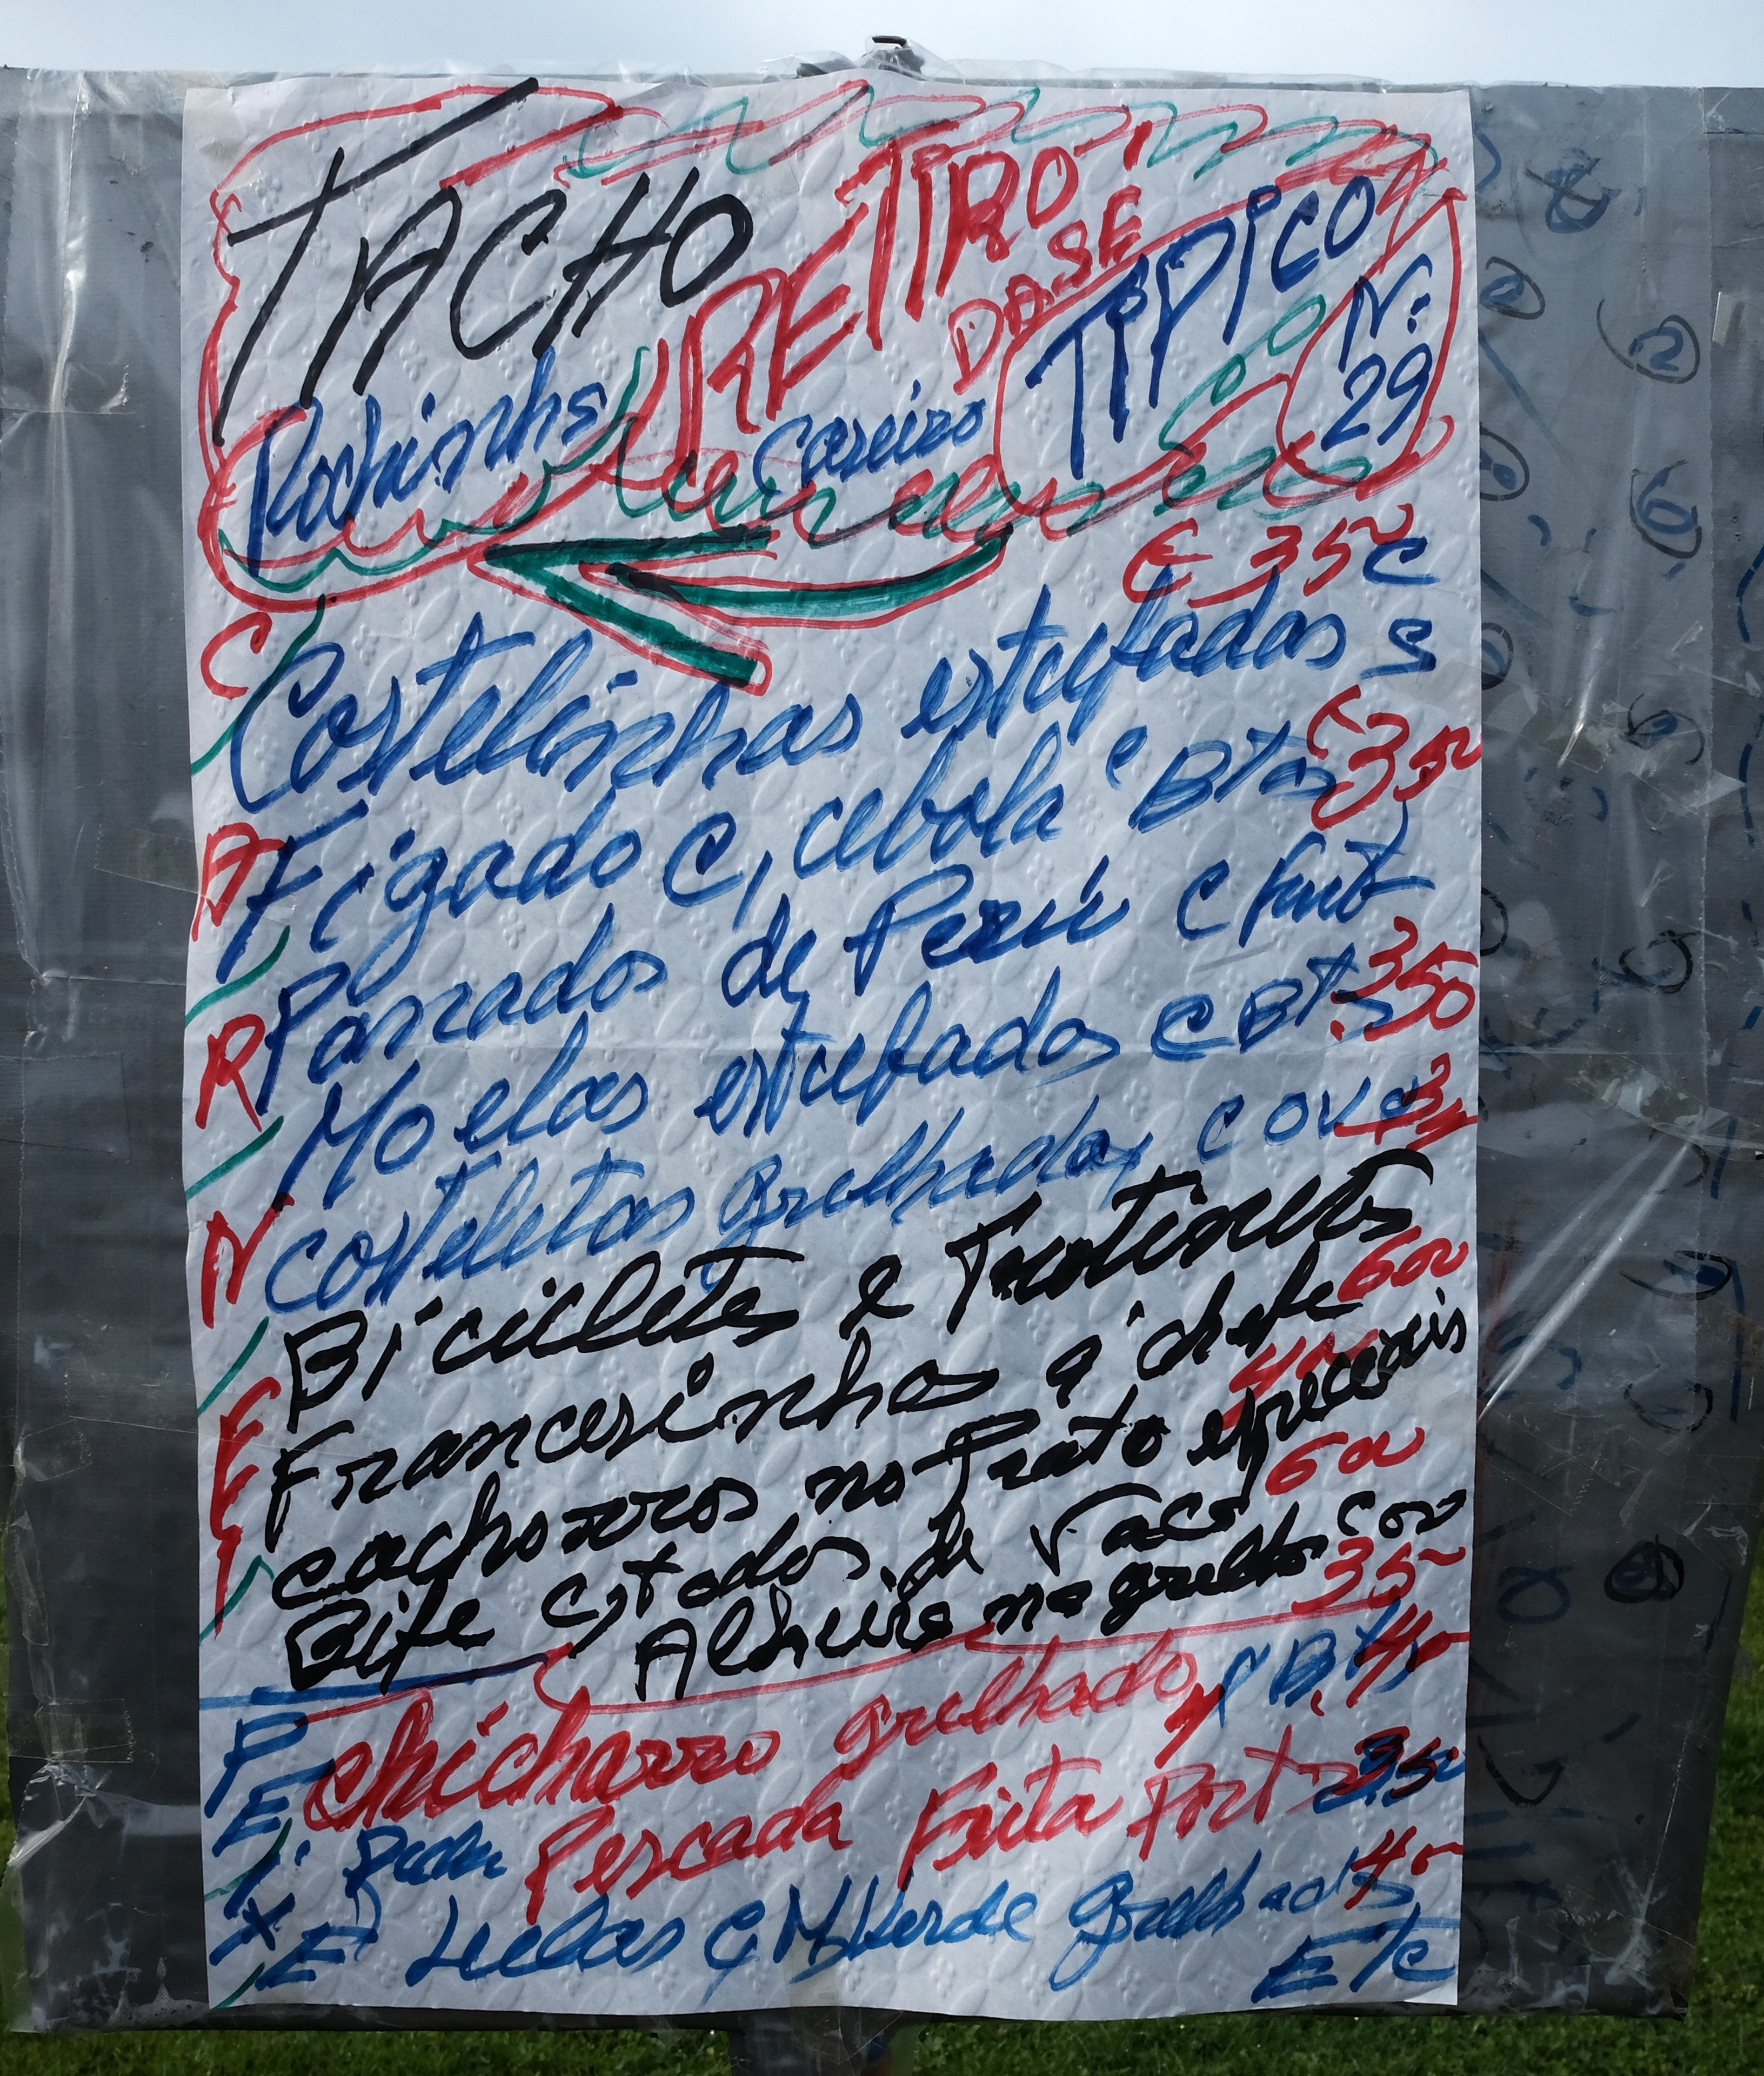 TACHO RETIRO DA SÉ TIPICO Nº 29
Caseiro
€ 350
Costelinhas estufadas C S
Figado C, cebola e BTas 350
Panados de Perú C frit
Moelas estufados C BTs 350
costeletas grelhadas C OVO
Bicicletes e Trotinets
Francesinhas á chefe 600
cachorros no Prato especiais
Bife de Vaca 600
Alheira na grelha C ov 350
CARNE
chicharro grelhado
Pescada Frita Port 350
Lulas C, M, Verde grelhadas
ETC
PEIXE